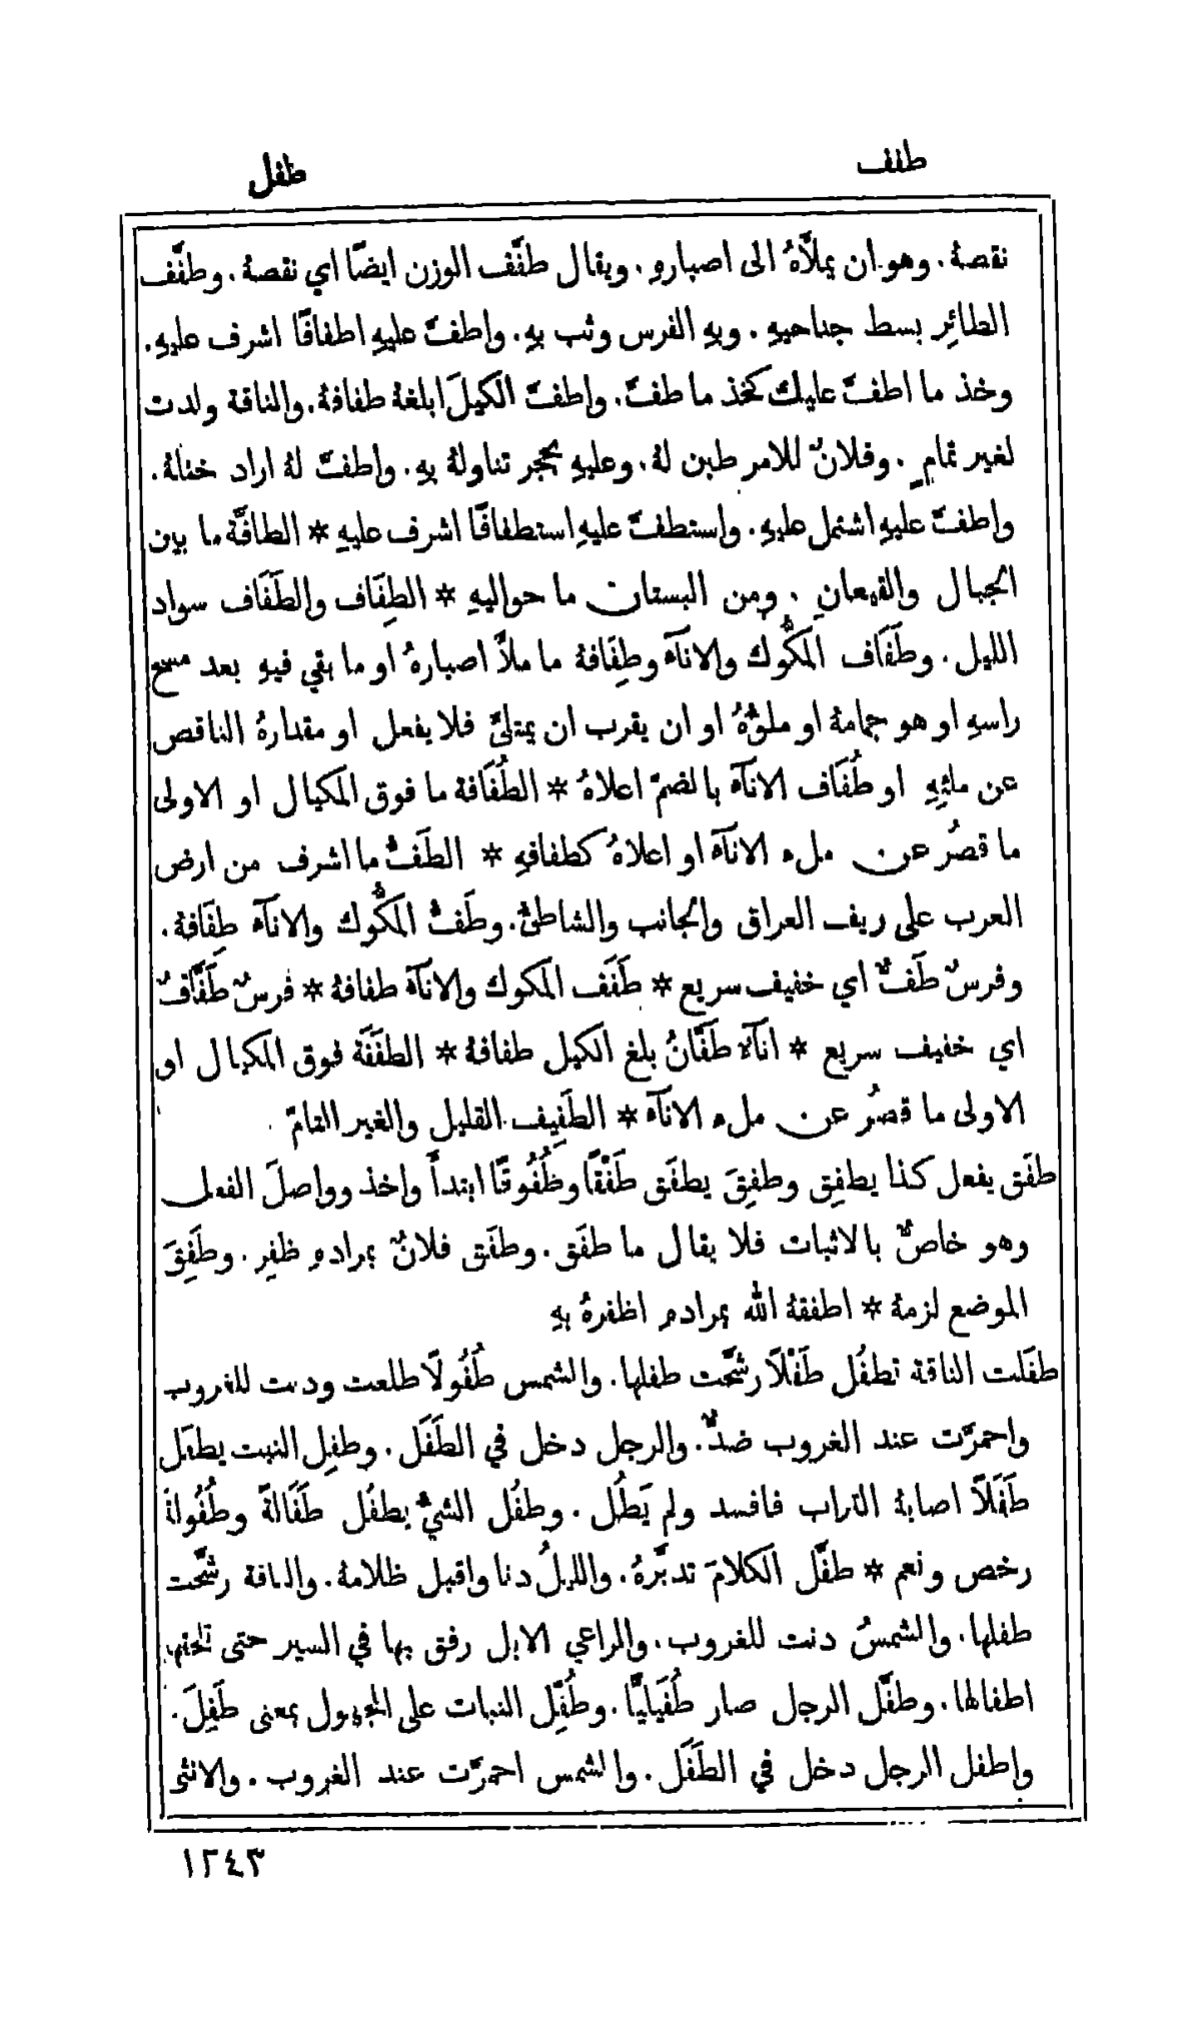 طفف
طفل
نقصهُ. وهو ان يملأَهُ الى اصبارهِ. ويقال طفَّف الوزن ايضًا اي نقصهُ. وطفَّف
الطائِر بسط جناحيهِ. وبهِ الفرس وثب بهِ. واطفَّ عليهِ اطفافًا اشرف عليهِ.
وخذ ما اطفَّ عليك كخذ ما طفَّ. واطفَّ الكيلَ ابلغهُ طفافهُ. والناقة ولدت
لغير تمامٍ. وفلانٌ للامر طبن لهُ. وعليهِ بحجر تناولهُ بهِ. واطفَّ لهُ اراد ختلهُ.
واطفَّ عليهِ اشتمل عليهِ. واستطفَّ عليهِ استطفافًا اشرف عليهِ * الطافَّة ما بين
الجبال والقيعانِ. ومن البستان ما حواليهِ * الطِفَاف والطَفَاف سواد
الليل. وطَفَاف المكُّوك والاناءَ وطِفَافهُ ما ملأَ اصبارهُ او ما بقي فيهِ بعد مسح
راسهِ او هو جمامهُ او ملؤُهُ او ان يقرب ان يمتلئَ فلا يفعل او مقدارهُ الناقص
عن ملئِهِ او طُفَاف الاناءَ بالضمّ اعلاهُ * الطُفَافة ما فوق المكيال او الاولى
ما قصُر عن ملء الاناءَ او اعلاهُ كطفافهِ * الطَفُّ ما اشرف من ارض
العرب على ريف العراق والجانب والشاطئُ. وطَفُّ المكُّوك والاناءَ طِفَافهُ.
وفرسٌ طَفٌّ اي خفيف سريع * طَفَف المكوك والاناءَ طفافهُ * فرسٌ طَفَّافٌ
اي خفيف سريع * اناءَ طَفَّانُ بلغ الكيل طفافهُ * الطفَفَة فوق المكيال او
الاولى ما قصُر عن ملء الاناءَ * الطَفِيف القليل والغير التامّ.
طفَق يفعل كذا يطفِق وطفِقَ يطفَق طَفْقًا وطُفُوقًا ابتدأَ واخذ وواصلَ الفعل
وهو خاصٌّ بالاثبات فلا يقال ما طفَق. وطفَق فلانٌ بمرادهِ ظفِر. وطَفِقَ
الموضع لزمهُ * اطفقهُ الله بمرادهِ اظفرهُ بهِ
طفَلت الناقة تطفُل طَفْلاً رشَّحت طفلها. والشمس طُفُولًا طلعت ودنت للغروب
واحمرَّت عند الغروب ضدٌّ. والرجل دخل في الطَفَل. وطفِل النبت يطفَل
طَفَلاً اصابهُ التراب فافسد ولم يَطُل. وطفُل الشيُّ يطفُل طَفَالةً وطُفُولةً
رخص ونعم * طفَّل الكلامَ تدبَّرهُ. والليلُ دنا واقبل ظلامهُ. والناقة رشَّحت
طفلها. والشمسُ دنت للغروب. والراعي الابل رفق بها في السير حتى تلحقها
اطفالها. وطفَّل الرجل صار طُفَيليًّا. وطُفِّل النبات على المجهول بمعنى طَفِلَ.
واطفل الرجل دخل في الطَفَل. والشمس احمرَّت عند الغروب. والانثى
١٢٤٣